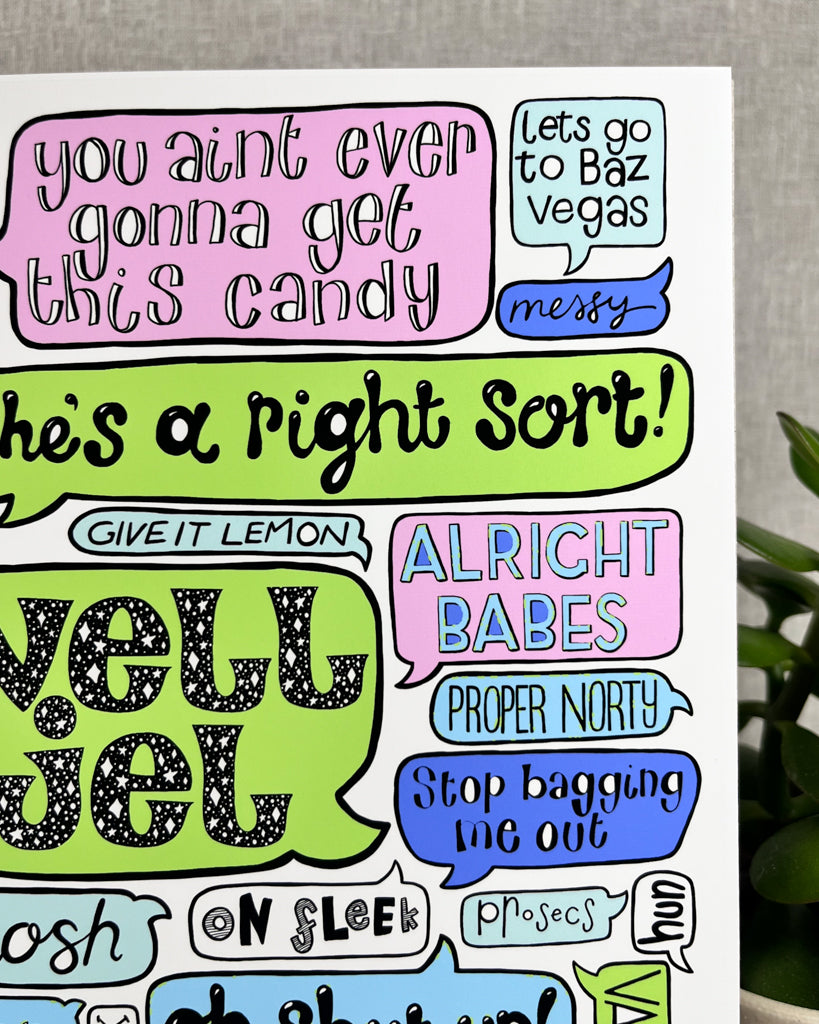 you aint ever
gonna get
this candy
lets go
to Baz
vegas
messy
he's a right sort!
GIVE IT LEMON
ALRIGHT
BABES
well
jel
PROPER NORTY
Stop bagging
me out
osh
ON fLEEK
prosecs
hun
oh shut up!
VA